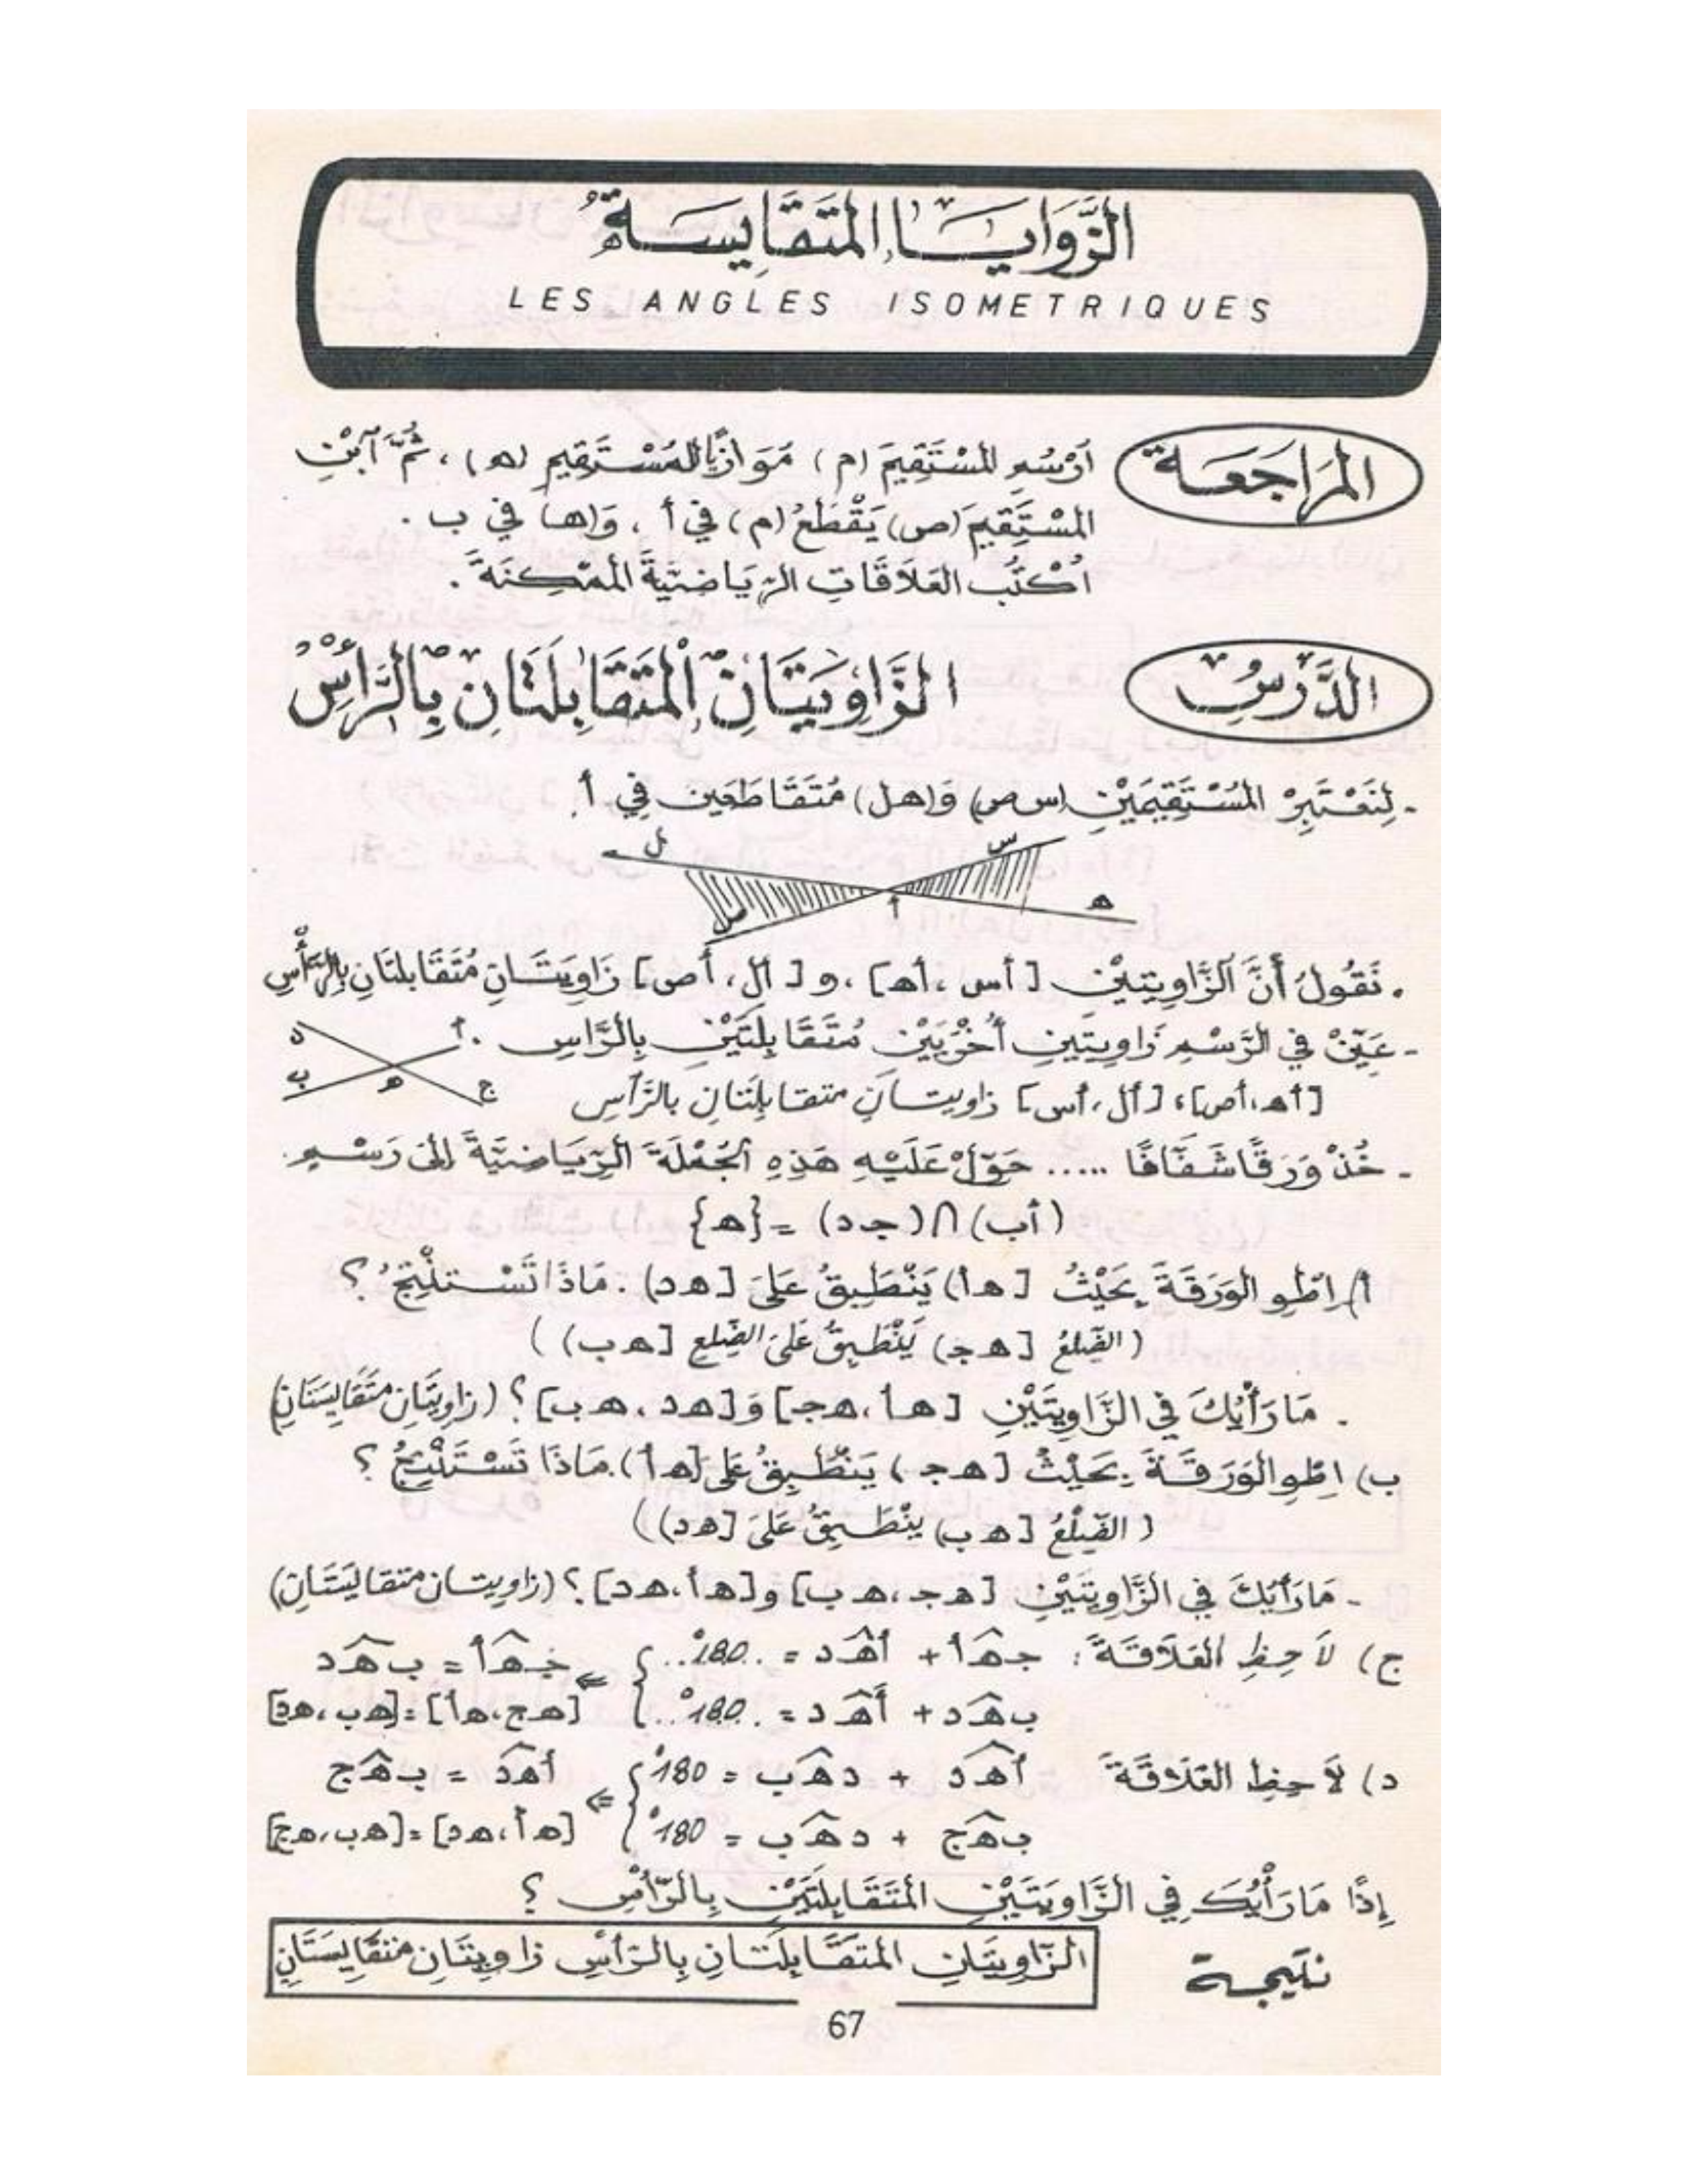 الزَّوَايَا المُتَقَايِسَةُ
LES ANGLES ISOMETRIQUES
المُرَاجَعَة
أُرْسُمِ المُسْتَقِيمَ (م) مُوَازِيًا لِلْمُسْتَقِيمِ (ه)، ثُمَّ آبْنِ
المُسْتَقِيمَ (ص) يَقْطَعُ (م) في أ، وَ(ها) في ب.
اُكْتُب العَلاَقَاتِ الرِّيَاضِيَّةَ المُمْكِنَةَ.
الدَّرْسُ
الزَّاوِيَتَانِ المُتَقَابِلَتَانِ بِالرَّأْسِ
- لِنَعْتَبِرْ المُسْتَقِيمَيْنِ (س ص) وَ(هل) مُتَقَاطَعَين فِي أ.
ل س
ص أ ه
. نَقُولُ أَنَّ آلزَّاوِيتَيْنِ [أس، أه]، و [أل، أص] زَاوِيَتَانِ مُتَقَابلتَانِ بِالرَّأْسِ
- عَيِّنْ فِي الرَّسْمِ زَاوِيتَيِن أُخْرَيَيْنِ مُتَقَابِلَتَيْنِ بِالرَّاسِ.
د أ
ب ه ج
[أه، أص]، [أل، أس] زاويتانِ متقابِلَتَانِ بالرَّأسِ
- خُذْ وَرَقًا شَفَّافًا ..... حَوِّلْ عَلَيْهِ هَذِهِ الجُمْلَةَ الرِّيَاضِيَّةَ إلَى رَسْمٍ.
(أب) ∩ (جد) = {ه}
أ) اطْوِ الوَرَقَةَ بِحَيْثُ [هأ) يَنْطَبِقُ عَلَى [هد). مَاذَا تَسْتنْتِجُ ؟
(الضِّلعُ [هج) يَنْطَبِقُ عَلَى الضِّلعِ [هب))
. مَا رَأْيُكَ فِي الزَّاوِيَتَيْنِ [هأ، هج] وَ [هد، هب] ؟ (زاويتَانِ متَقَايِسَتَانِ)
ب) اِطْوِ الوَرَقَةَ بِحَيْثُ [هج) يَنْطَبِقُ عَلى [هأ). مَاذَا تَسْتَنْتِجُ ؟
(الضِّلْعُ [هب) يَنْطَبِقُ عَلَى [هد))
- مَا رَأيُكَ فِي الزَّاوِيتَيْنِ [هج، هب] و [هأ، هد] ؟ (زاويتان متقايسَتَانِ)
ج) لاَحِظِ العَلاَقَةَ : جهأ + أهد = ..180°.. } ⇐ جهأ = بهد
بهد + أهد = ..180°.. } [هج، هأ] = [هب، هد]
د) لاَحِظِ العَلاَقَةَ أهد + دهب = 180° } ⇐ أهد = بهج
بهج + دهب = 180° } [هأ، هد] = [هب، هج]
إِذًا مَا رَأْيُكَ فِي الزَّاوِيَتَيْنِ المُتَقَابِلَتَيْنِ بِالرَّأْسِ ؟
نتيجة
الزَّاوِيَتَانِ المُتَقَابِلَتَانِ بِالرَّأْسِ زاويتَانِ متقَايِسَتَانِ
67